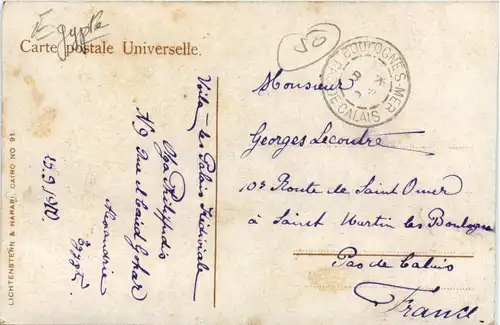 Egypte
Carte postale Universelle.
50
BOULOGNE-S-MER
PAS-DE-CALAIS
Monsieur
Georges Lecoutre
103 Route de Saint Omer
à Saint Martin les Boulogne
Pas de Calais
France
Voilà les Palais Khédiviale
Olga
No 9 Rue el
Alexandrie
Egypte
25.9.1910.
LICHTENSTERN & HARARI, CAIRO NO 91